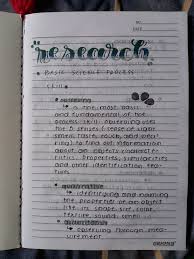 NO.
DATE
"research"
• BASIC SCIENCE PROCESS
SKILL
• observing
↳ a the most basic
and fundamental of the
process skill. observing uses
the 5 senses (sense of sight
smell, taste, touch, and hea-
ring) to find out information
about an objects character-
istics, properties, similarities
and other identification
• qualitative
↳ identifying and naming
the properties of an object
like its shape, size, color,
texture, sound, smell
• quantitative
↳ observing through mea-
surement